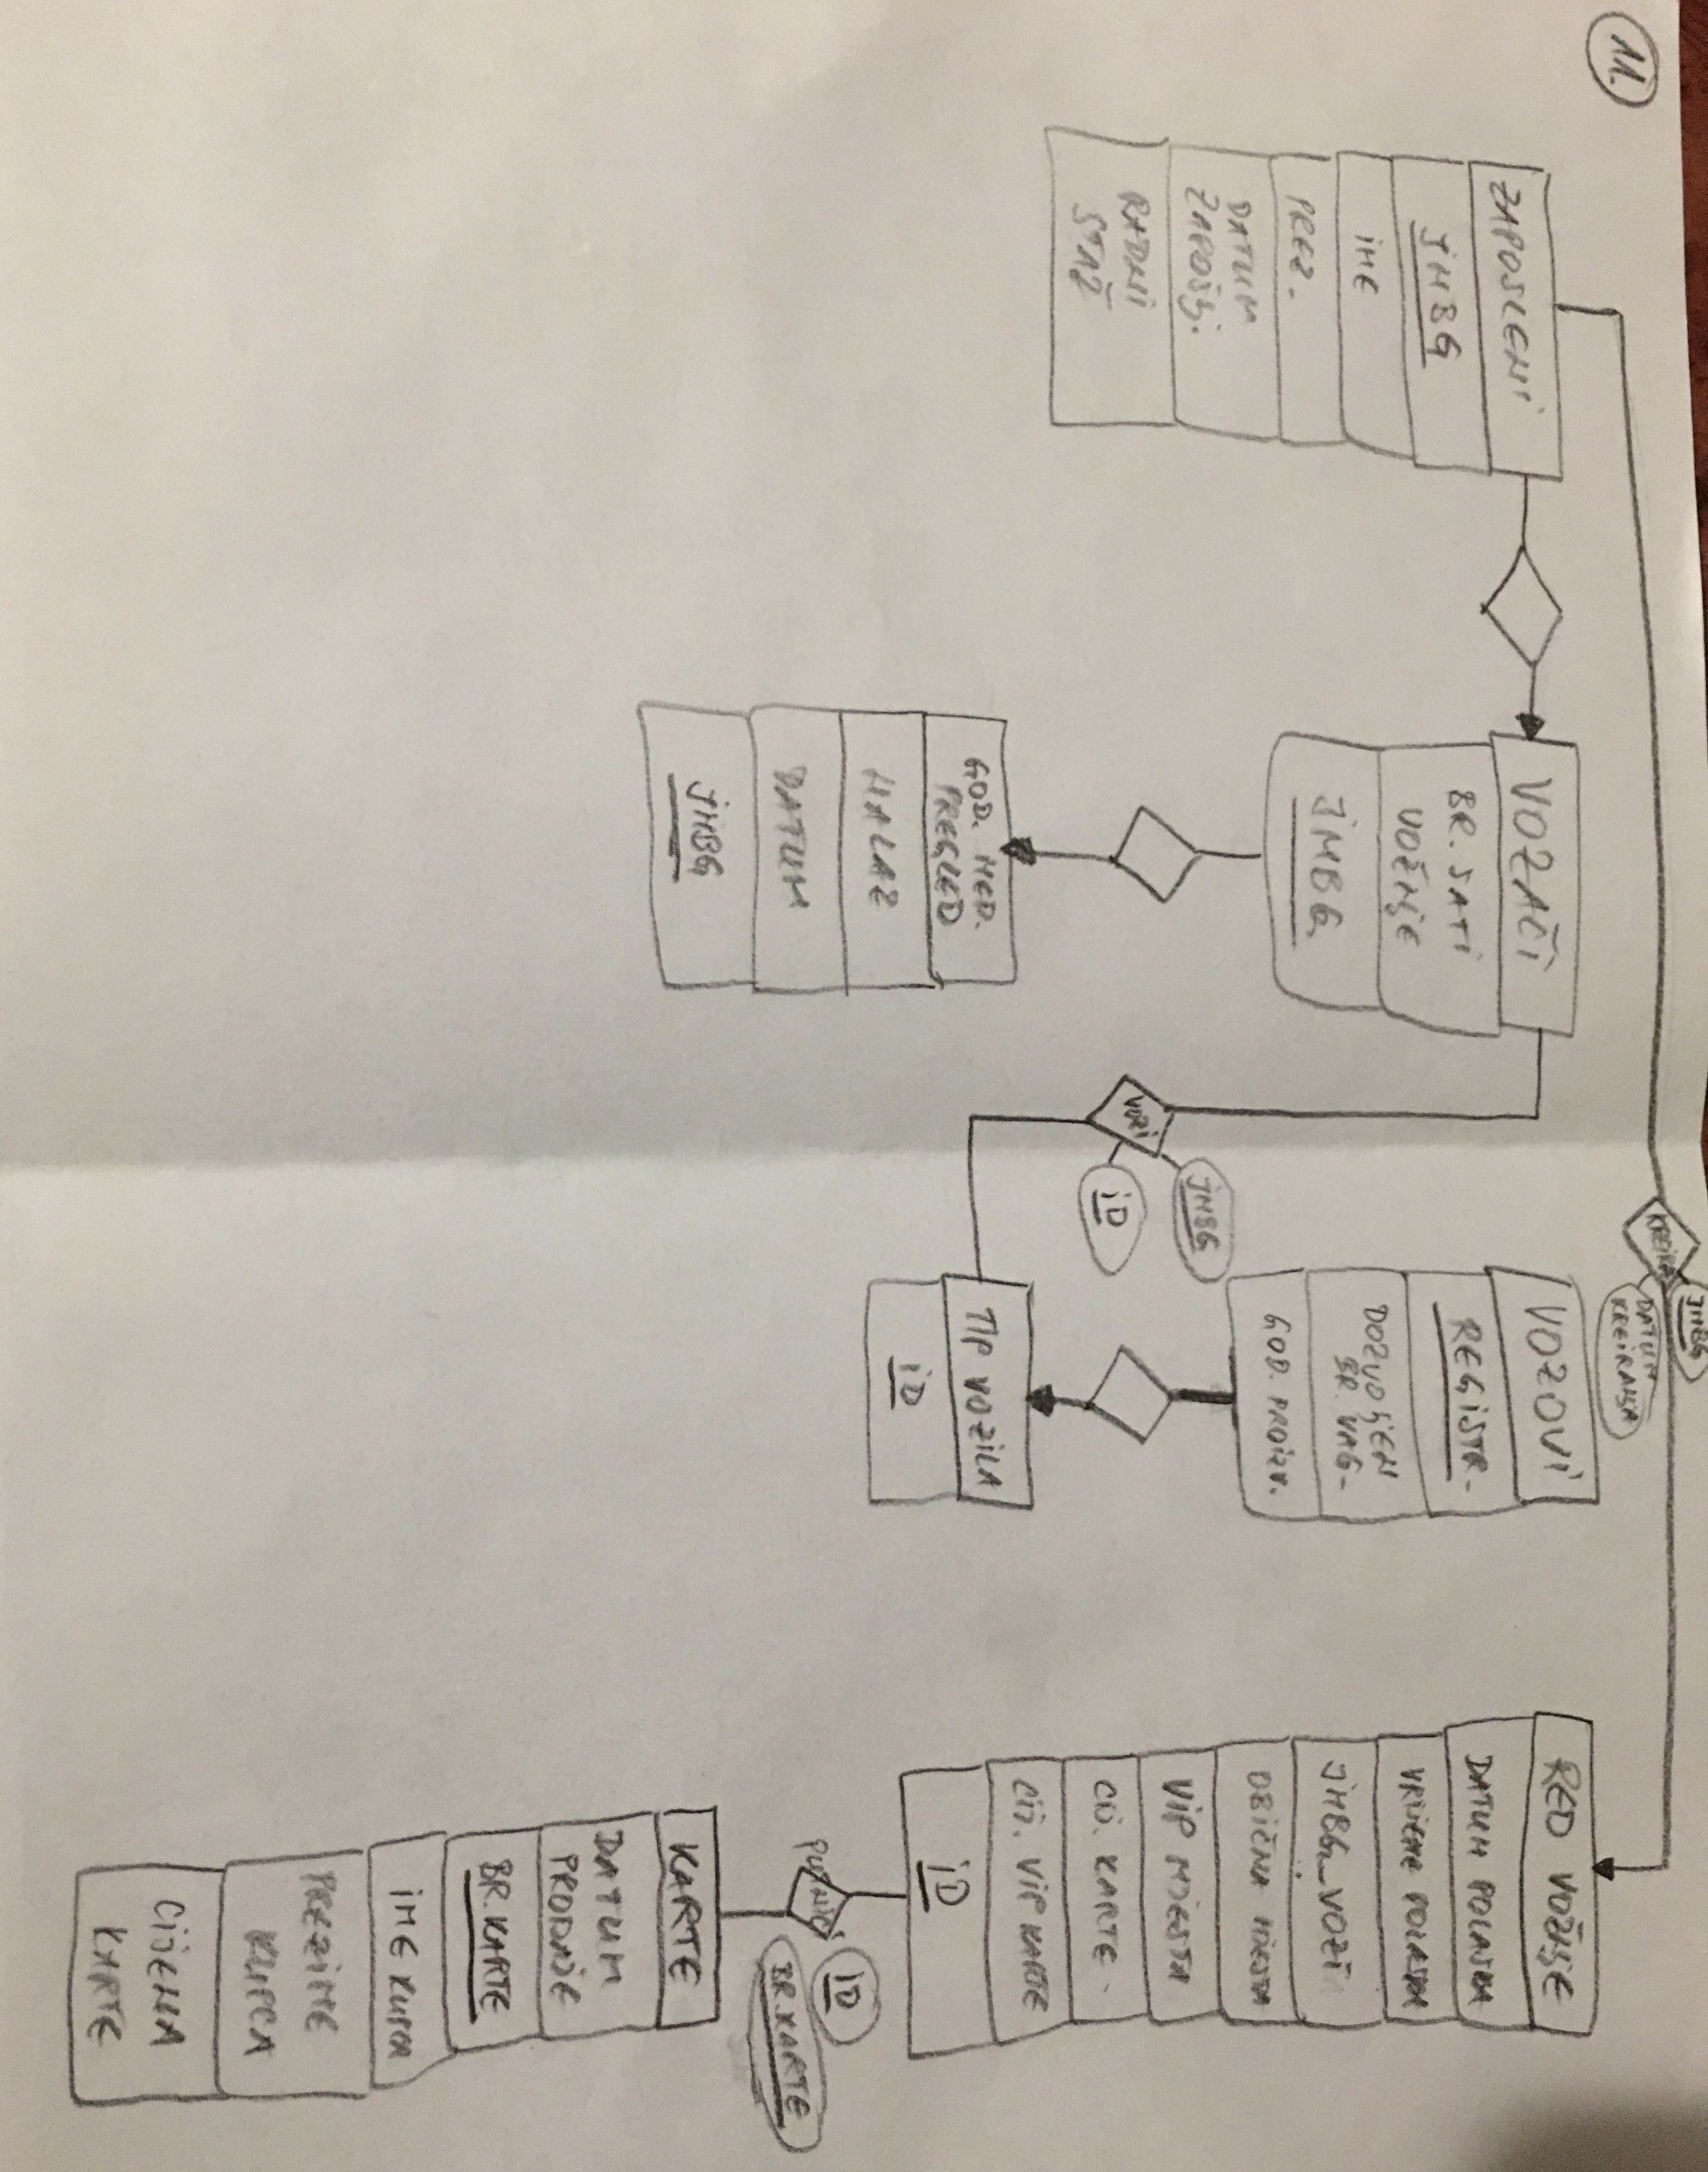 11.
ZAPOSLENI
JMBG
IME
PREZ.
DATUM
ZAPOŠLJ.
RADNI
STAŽ
VOZAČI
BR. SATI
VOŽNJE
JMBG
GOD. MED.
PREGLED
NALAZ
DATUM
JMBG
VOZI
JMBG
ID
KREIRA
JMBG
DATUM
KREIRANJA
VOZOVI
REGISTR.
DOZVOLJEN
BR. VAG.
GOD. PROIZV.
TIP VOZILA
ID
RED VOŽNJE
DATUM POLASKA
VRIJEME POLASKA
JMBG_VOZI
OBIČNA MJESTA
VIP MJESTA
CIJ. KARTE.
CIJ. VIP KARTE
ID
ID
BR. KARTE
KARTE
DATUM
PRODAJE
BR. KARTE
IME KUPCA
PREZIME
KUPCA
CIJENA
KARTE